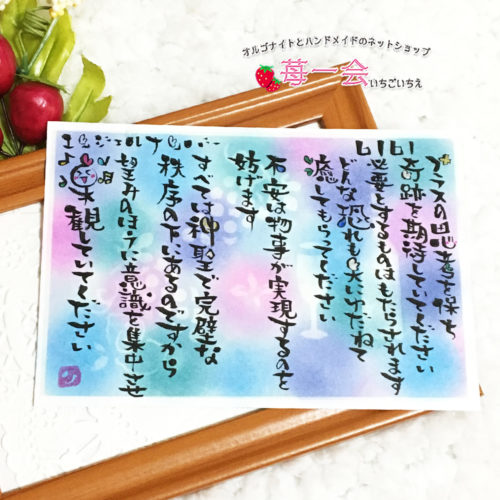 オルゴナイトとハンドメイドのネットショップ
苺一会
いちごいちえ
エンジェルナンバー
6161
プラスの思考を保ち
奇跡を期待していてください
必要とするものはもたらされます
どんな恐れも天にゆだねて
癒してもらってください
不安は物事が実現するのを
妨げます
すべては神聖で完璧な
秩序の下にあるのですから
望みのほうに意識を集中させ
楽観していてください